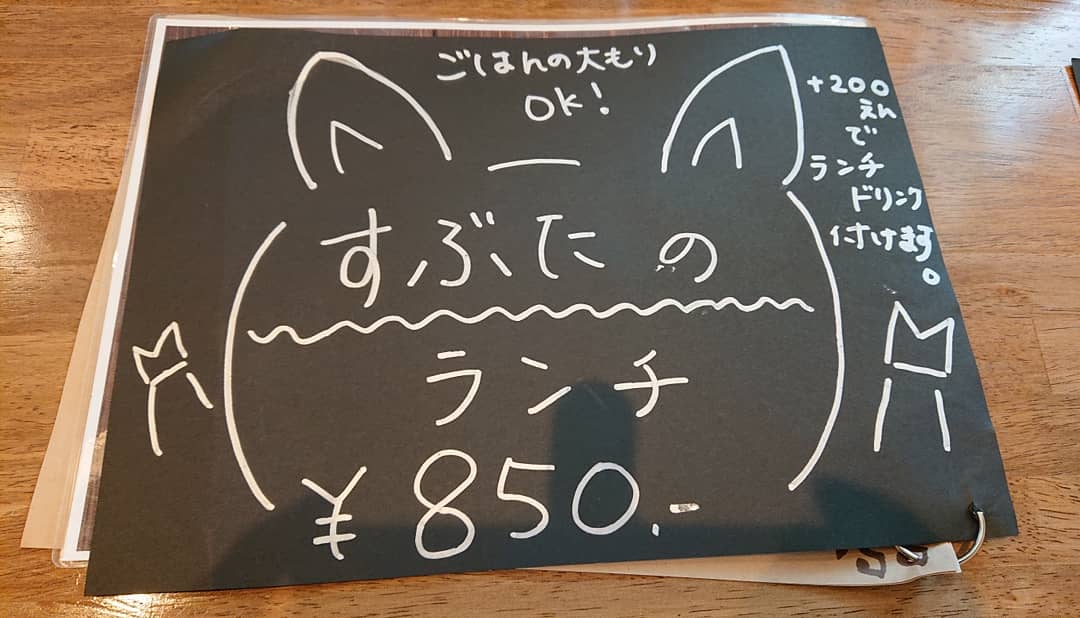 ごはんの大もり
OK!
+200
えん
で
ランチ
ドリンク
付けます。
すぶたの
ランチ
¥850.-